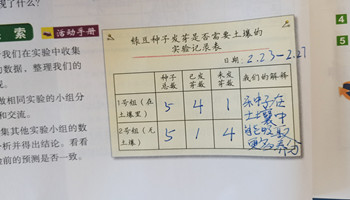 现了什么？
索
活动手册
绿豆种子发芽是否需要土壤的
实验记录表
日期：2.23-2.27
种子总数 已发芽数 未发芽数 我们的解释
1号组（在土壤里） 5 4 1
2号组（无土壤） 5 1 4
土壤中
养分
们在实验中收集
的数据，整理我们的
现。
做相同实验的小组分
和交流。
集其他实验小组的数
分析并得出结论。看看
验前的预测是否一致。